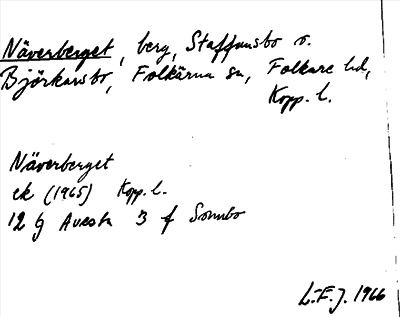 Näverberget, berg, Staffansbo o.
Björkarsbo, Folkärna sn, Folkare hd,
Kopp. l.
Näverberget
ek (1965) Kopp. l.
12 G Avesta 3 f Sonnbo
L.F.J. 1966